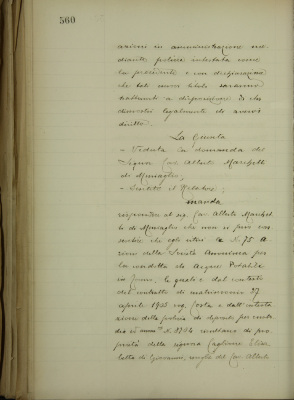 560
azioni in amministrazione me-
diante polizza intestata come
la precedente e con dichiarazione
che tali nuovi titoli saranno
trattenuti a disposizione di chi
dimostri legalmente di averne
diritto.
La Giunta
- Veduta la domanda del
Signor Cav. Alberto
di
- Sentito il Relatore;
manda
rispondere al sig. Cav. Alberto
di che non si può
che egli le N. 75 A-
zioni della Società Anonima per
la condotta di Acqua Potabile
in quali e dal contratto
di matrimonio 27
aprile 1903 rog. Costa e dall'intesta-
zione della polizza di deposito per custo-
dia N. 1704 risultano di pro-
prietà della signora Eliza-
betta di Giovanni, moglie del Cav. Alberto